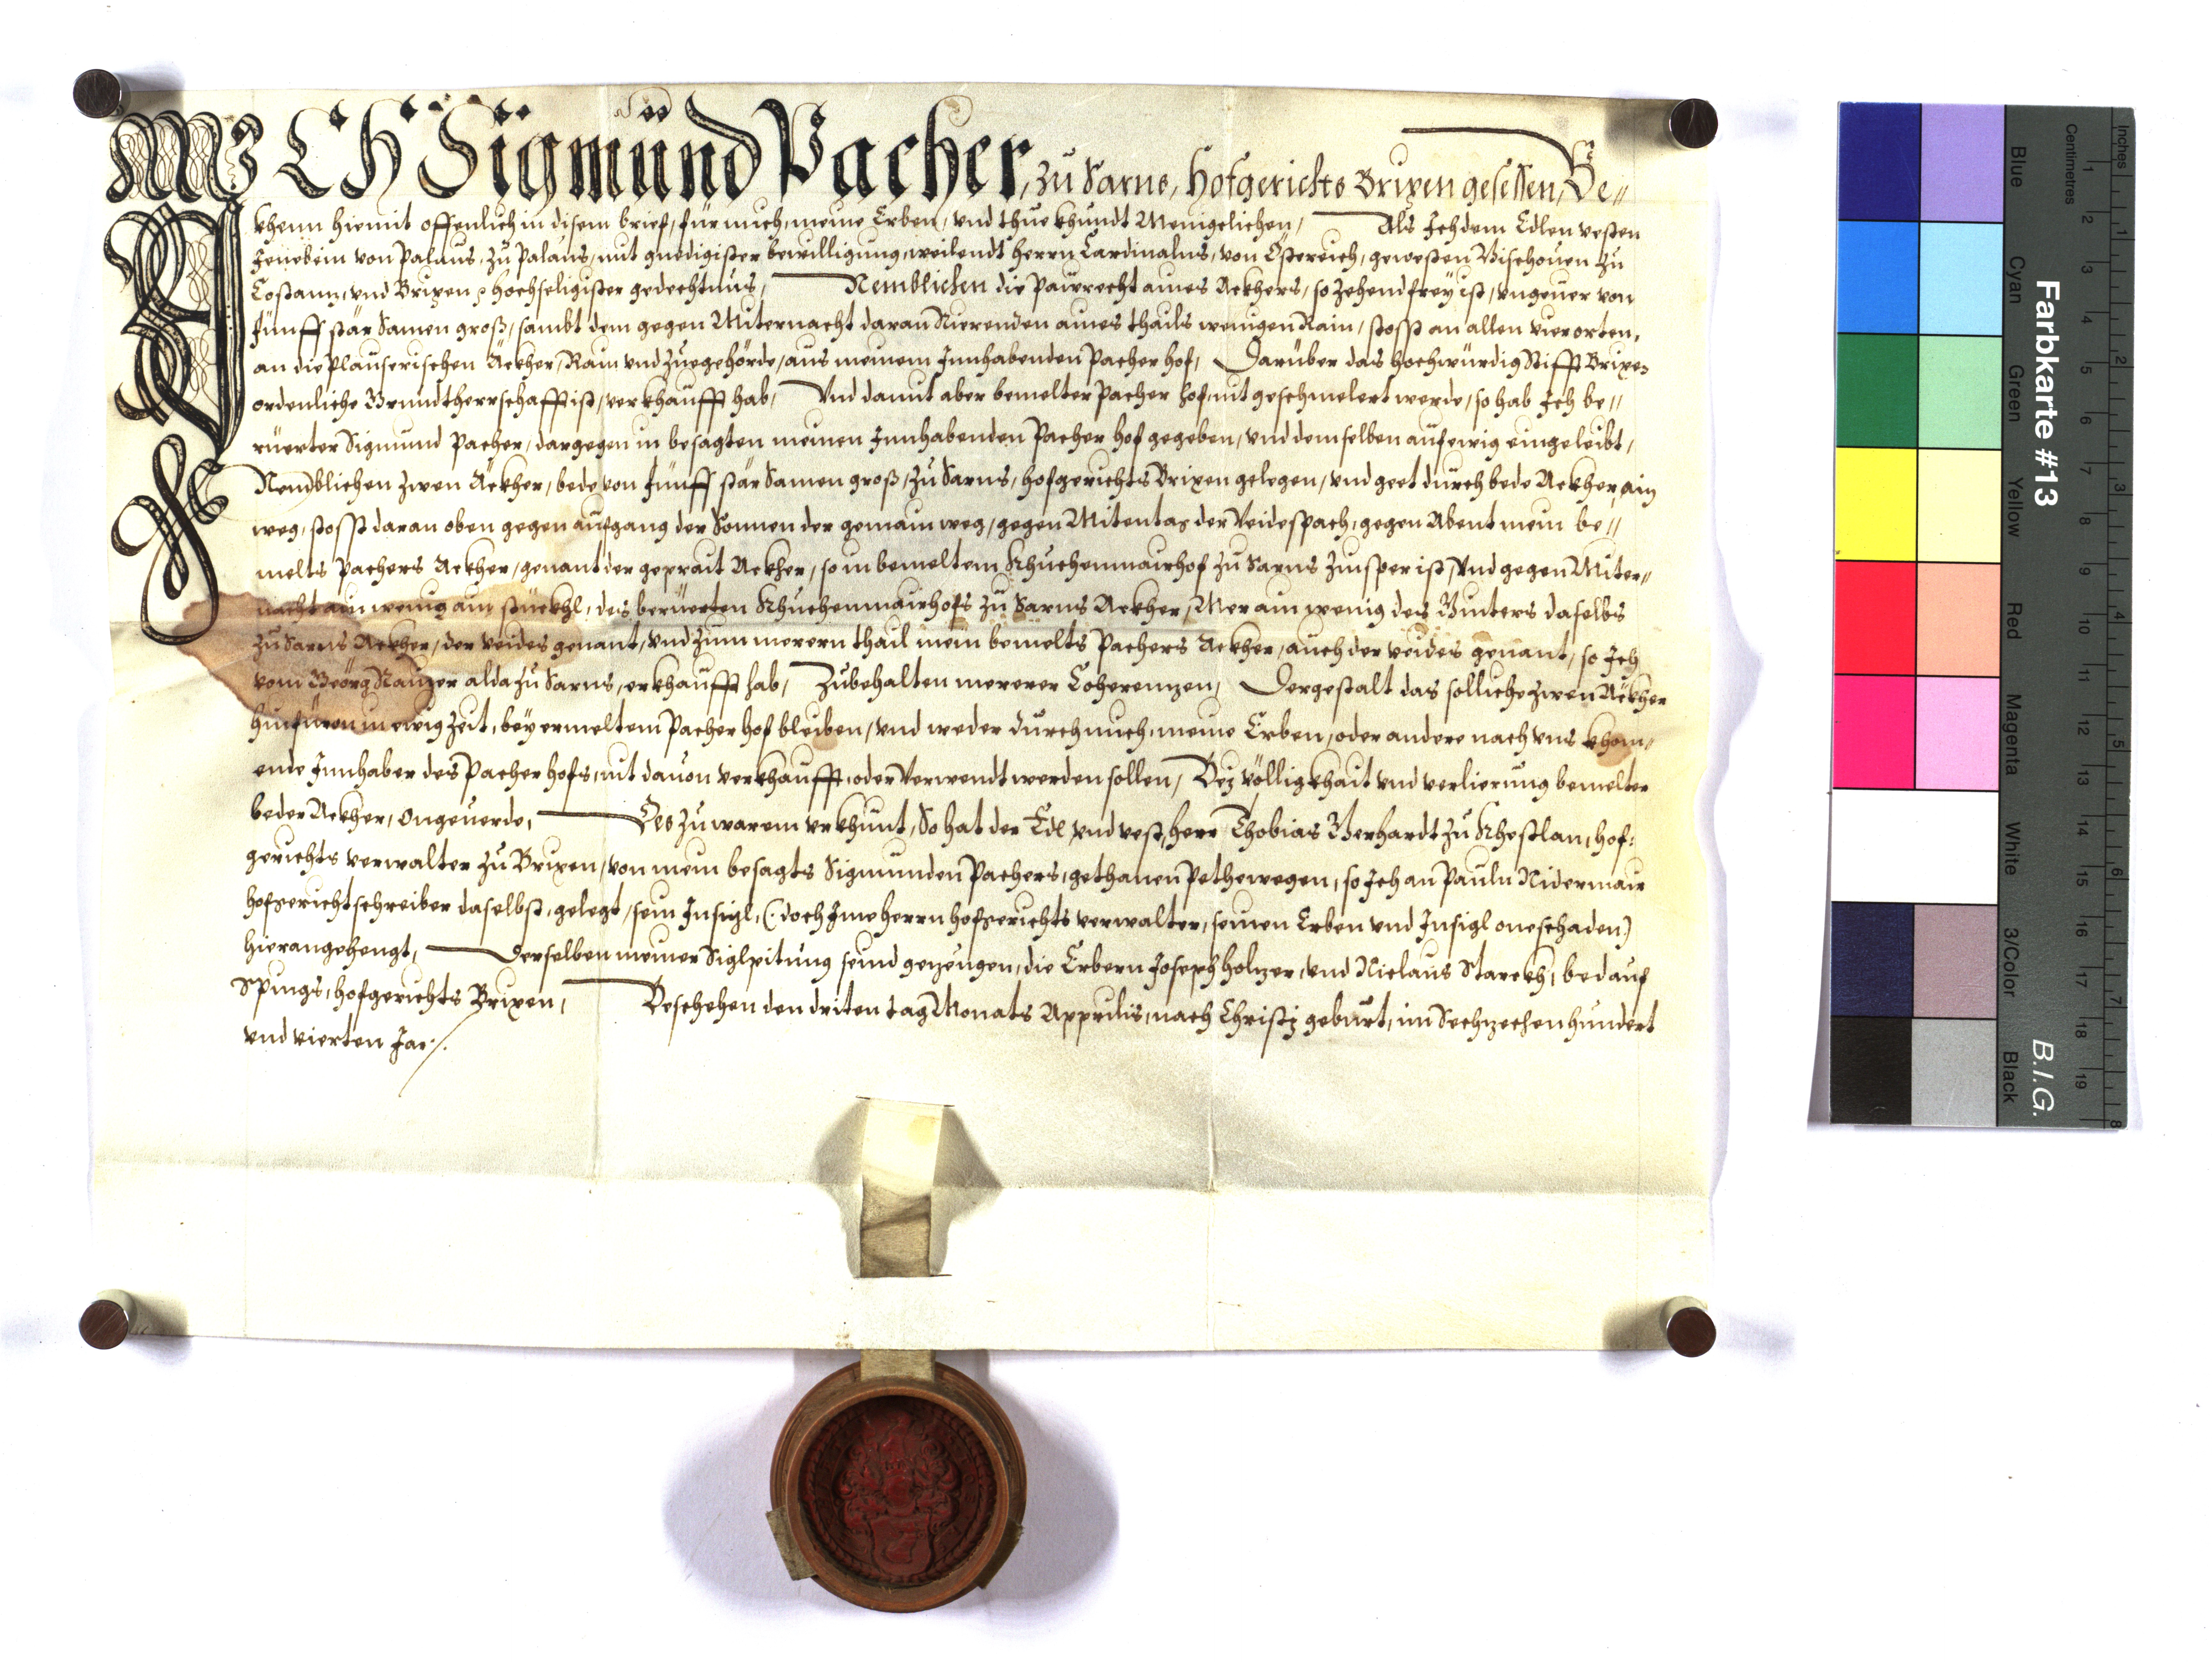 ICH Sigmund Pacher, zu Sarns, Hofgerichts Brixen gesessen, Be//
khenn hiemit offenlich in disem brief, für mich, meine Erben, vnd thue khundt Menigclichen, Als Ich dem Edlen vesten
von Palaus, zu Palaus, mit gnedigister bewilligung, weilendt herrn Cardinalns, von Össterreich, gewesten Bischouen zu
Costannz, vnd Brixen, hochseligister gedechtnus, Nemblichen die Paurecht aines Ackhers, so zehendfrey ist, vngeuer von
fünff stär Samen groß, sambt dem gegen Miternacht daran Rierenden aines thails wenigen Rain, stosst an allen vier orten,
an die Plauserischen Äckher, Rain vnd zuegehörde, aus meinem Innhabenden Pacher hof, Darüber das hochwürdig Stifft Brixen
ordenliche Grundtherrschafft ist, verkhaufft hab, Vnd damit aber bemelter Pacher hof, nit geschmelert werde, so hab Ich be//
ruerter Sigmund Pacher, dargegen in besagten meinen Innhabenden Pacher hof gegeben, vnd demselben auf ewig eingeleibt,
Nemblichen zwen Äckher, bede von fünff stär Samen groß, zu Sarns, hofgerichts Brixen gelegen, vnd geet durch bede Äckher, ain
weg, stosst daran oben gegen aufgang der Sonnen der gemain weg, gegen Mitentag der Veidespach, gegen Abent mein be//
melts Pachers Ackher, genant der geprait Ackher, so in bemeltem Khuchenmairhof zu Sarns zinsper ist, Vnd gegen Miter//
nacht ain wenig ain stückhl, des beruerten Khuchenmairhofs zu Sarns Ackher, Mer ain wenig des Ginters daselbs
zu Sarns Ackher, der veides genant, vnd zum merern thail mein bemelts Pachers Ackher, auch der veides genant, so Ich
vom Geörg alda zu Sarns, erkhaufft hab, Zubehalten merer Coherennzen, Dergestalt das solliche zwen Äckher
hinfüron in ewig zeit, bey ermeltem Pacher hof bleiben, vnd weder durch mich, meine Erben, oder andere nach vns khom//
ende Innhaber des Pacher hofs, nit dauon verkhaufft, oder verwendt werden sollen, Bey völligkhait vnd verlierung bemelter
beder Ackher, Ongeuerde, Des zu warem vrkhunt, So hat der Edl vnd vest, herr Thobias Gerhardt zu Khestlan, hof:
gerichts verwalter zu Brixen, von mein besagts Sigmunden Pachers, gethanen Pethewegen, so Ich an Pauln Nidermair
hofgerichtschreiber daselbst, gelegt, sein Insigl, (: doch Ime herrn hofgerichts verwalter, seinen Erben vnd Insigl one schaden)
hieran gehengt, Derselben meiner Siglpitung seind gezeugen, die Erbern Joseph Holtzer, vnd Niclaus Starckh, bed auf
Spings, hofgerichts Brixen, Beschehen den driten tag Monats Apprilis, nach Christj geburt, im Sechzechenhundert
vnd vierten Jar/.
Farbkarte #13
B.I.G.
Centimetres
Inches
Blue
Cyan
Green
Yellow
Red
Magenta
White
3/Color
Black
1 2 3 4 5 6 7 8 9 10 11 12 13 14 15 16 17 18 19
1 2 3 4 5 6 7 8